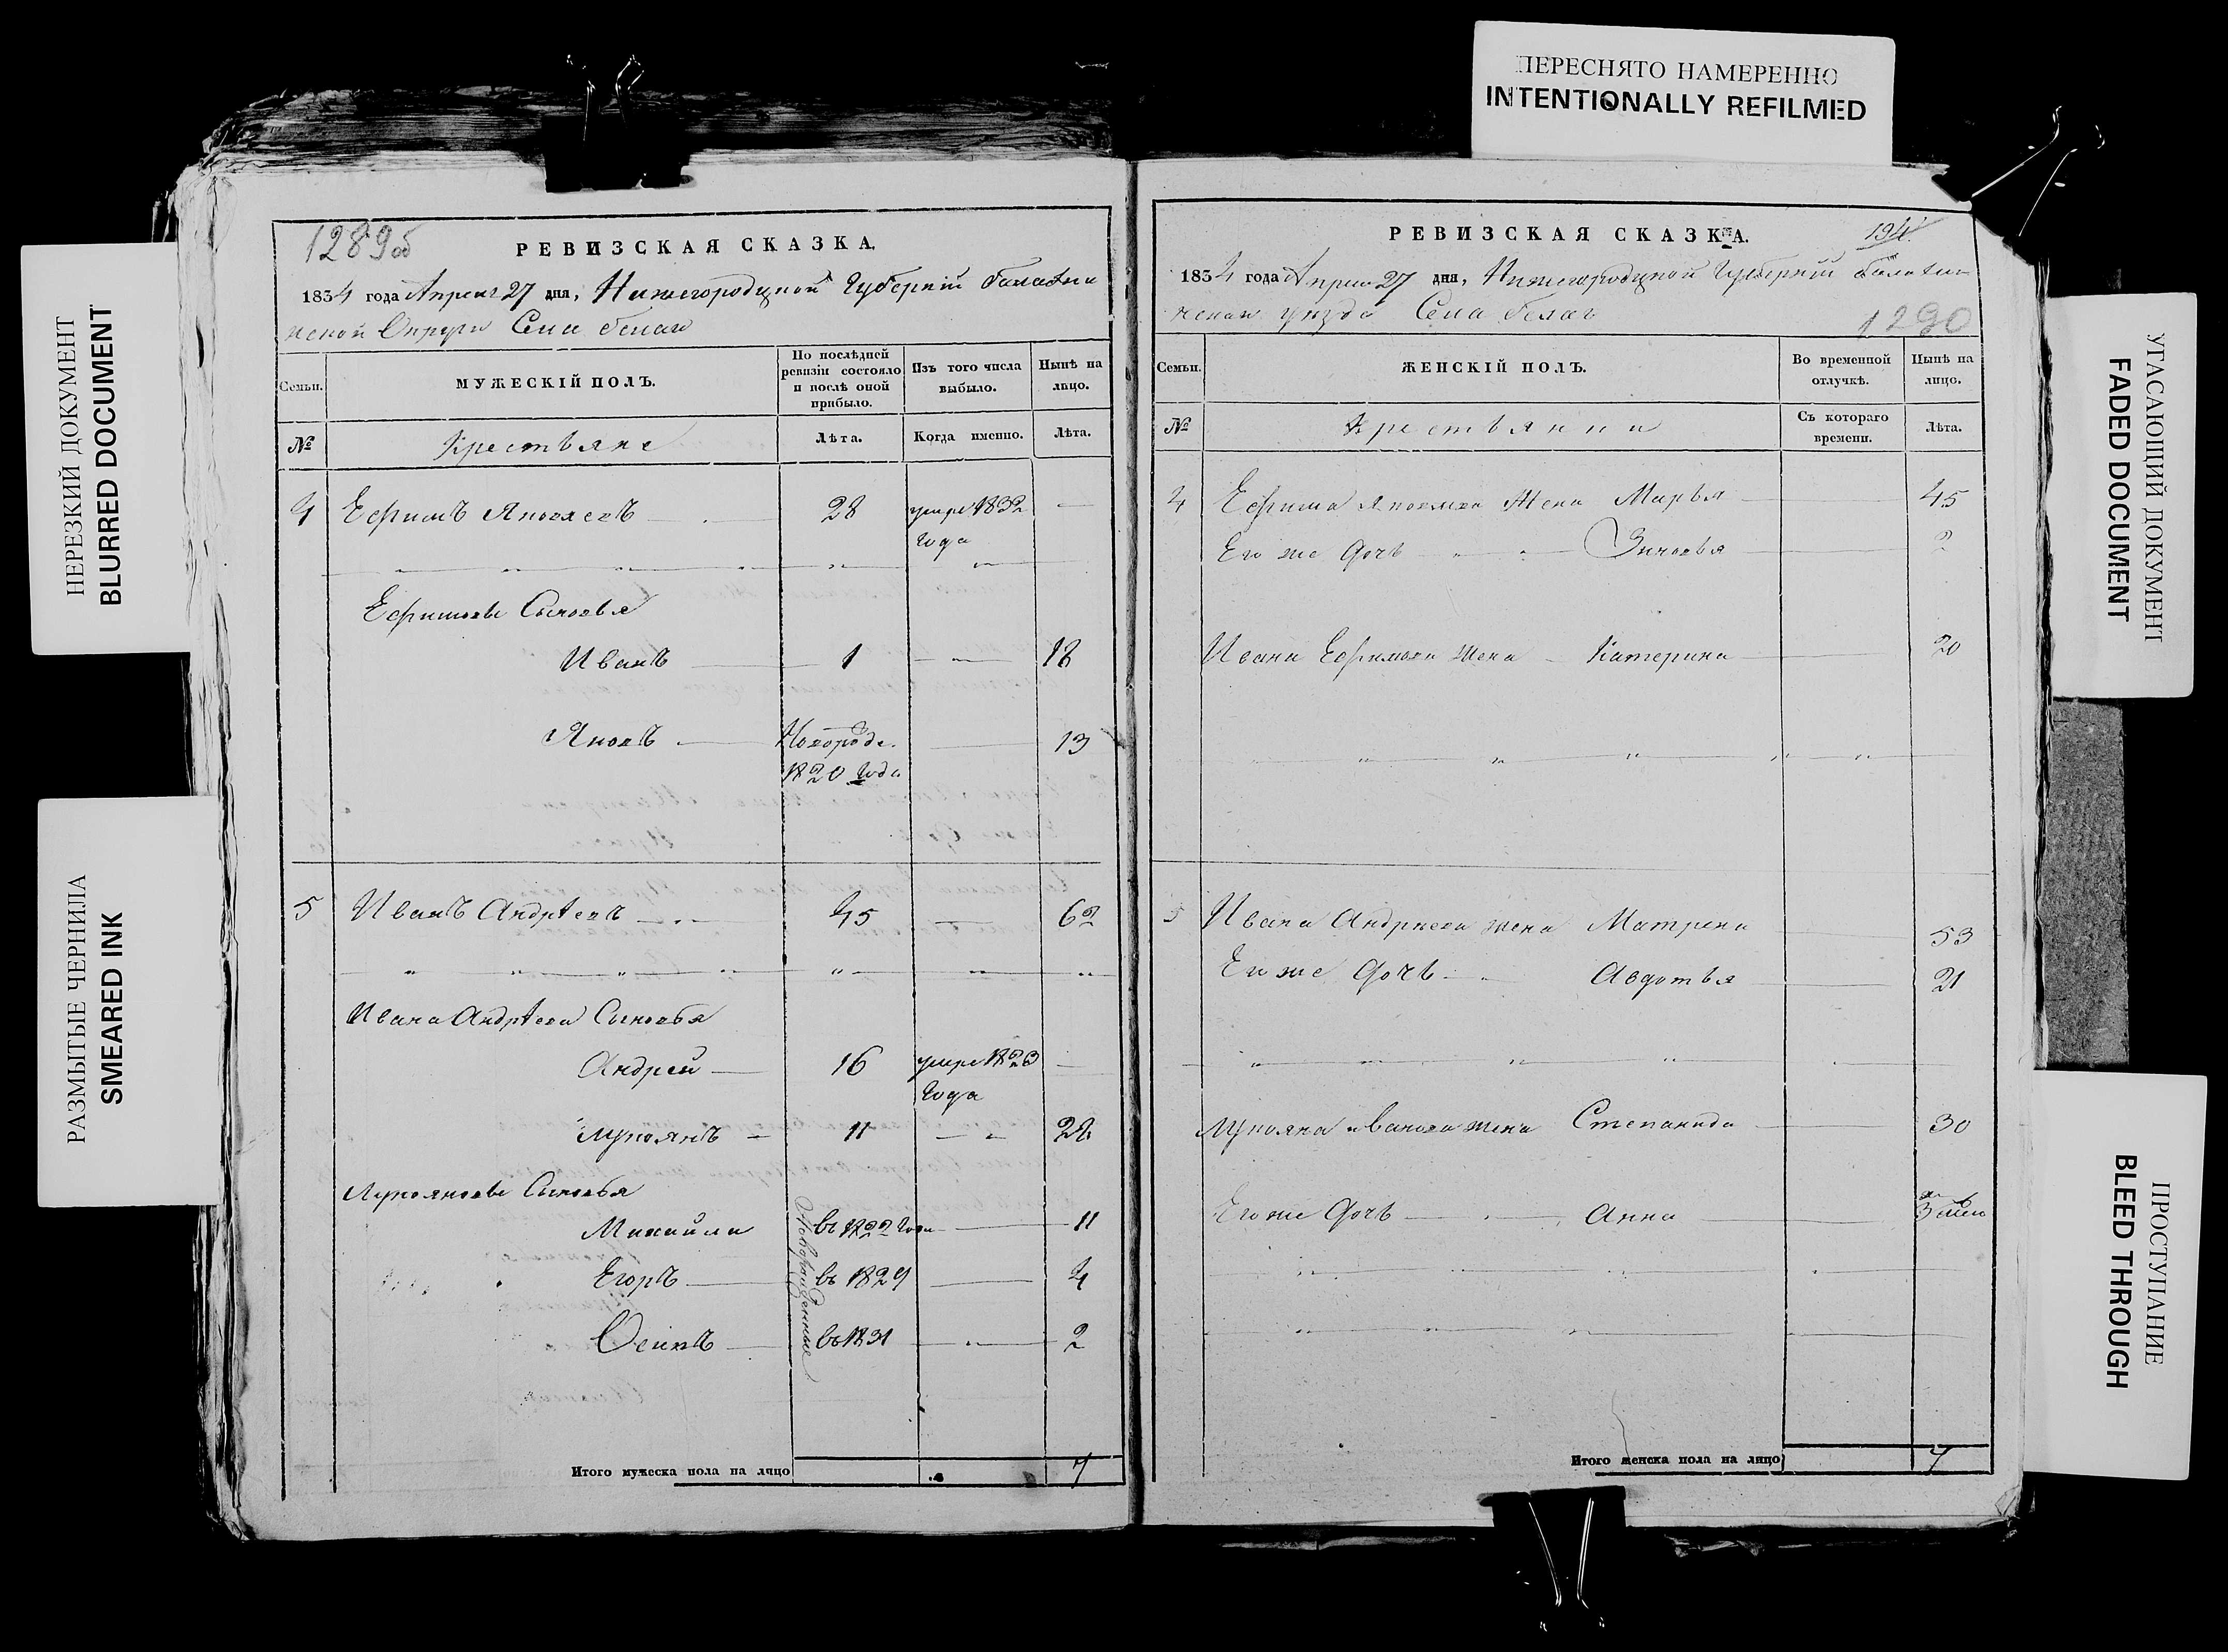 ПЕРЕСНЯТО НАМЕРЕННО
INTENTIONALLY REFILMED
НЕРЕЗКИЙ ДОКУМЕНТ
BLURRED DOCUMENT
РАЗМЫТЫЕ ЧЕРНИЛА
SMEARED INK
1289об
РЕВИЗСКАЯ СКАЗКА.
1834 года Апреля 27 дня, Нижегородцкой Губерніи балахни
нской Округи Села белаго
Семьи.
МУЖЕСКІЙ ПОЛЪ.
По послѣдней ревизіи состояло и послѣ оной прибыло.
Изъ того числа выбыло.
Нынѣ на лицо.
№
Крестьяне
Лѣта.
Когда именно.
Лѣта.
4 Ефимъ Яковлевъ 28 умре 1832 —
года
Ефимовы Сыновья
Иванъ 1 — 18
Яковъ Новорожде. 13
1820 года
5 Иванъ Андрѣевъ 45 — 62
Ивана Андрѣева Сыновья
Андрей 16 умре 1823 —
года
Лукоянъ 11 — 28
Лукояновы Сыновья
Новорожденные
Михайла въ 1822 годе 11
Егоръ въ 1829 4
Осипъ въ 1831 2
Итого мужеска пола на лицо 7
РЕВИЗСКАЯ СКАЗКА.
194
1834 года Апреля 27 дня, Нижегородцкой Губерніи балахни
нскаго уезда Села белаго
1290
Семьи.
ЖЕНСКІЙ ПОЛЪ.
Во временной отлучкѣ.
Нынѣ на лицо.
№
Крестьянки
Съ котораго времени.
Лѣта.
4 Ефима Яковлева Жена Марья 45
Его же дочь Зиновья 2
Ивана Ефимова жена Катерина 20
5 Ивана Андреева жена Матрена 53
Его же дочь Авдотья 21
Лукояна иванова жена Степанида 30
Его же дочь Анна 3
Итого женска пола на лицо 7
УГАСАЮЩИЙ ДОКУМЕНТ
FADED DOCUMENT
ПРОСТУПАНИЕ
BLEED THROUGH